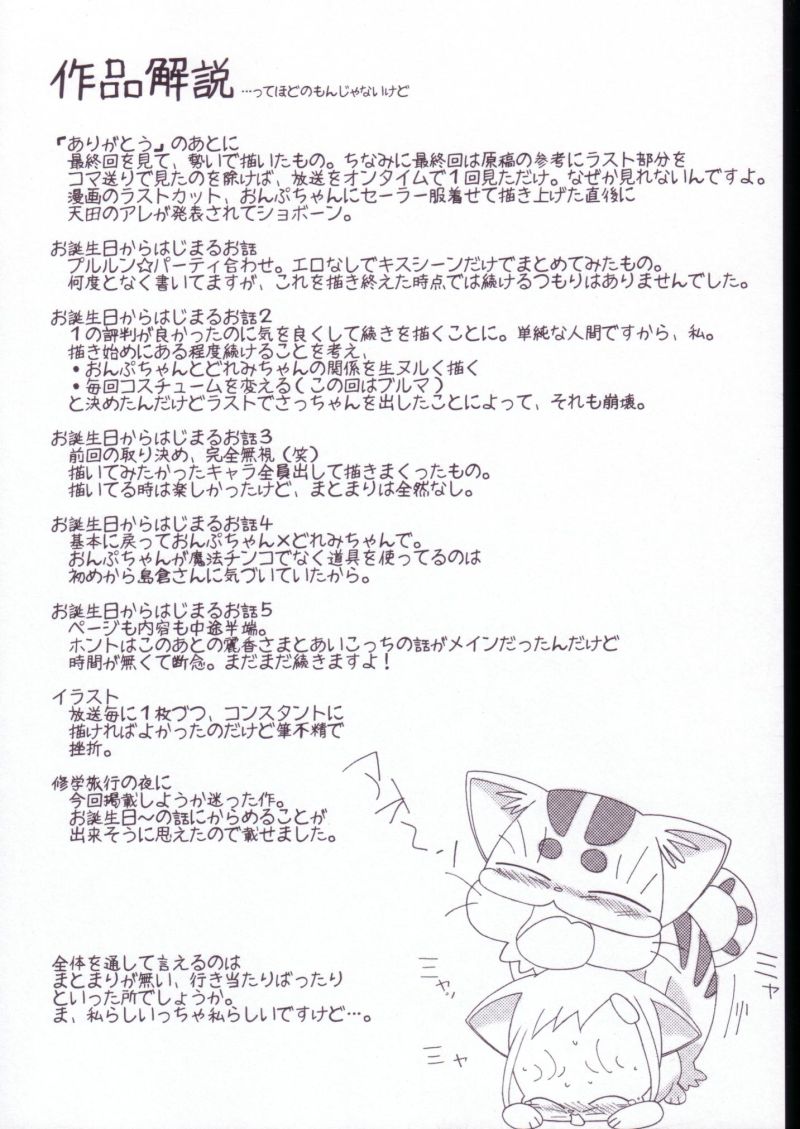 作品解説 …ってほどのもんじゃないけど
『ありがとう』のあとに
最終回を見て、勢いで描いたもの。ちなみに最終回は原稿の参考にラスト部分を
コマ送りで見たのを除けば、放送をオンタイムで1回見ただけ。なぜか見れないんですよ。
漫画のラストカット、おんぷちゃんにセーラー服着せて描き上げた直後に
天田のアレが発表されてショボーン。
お誕生日からはじまるお話
プルルン☆パーティ合わせ。エロなしでキスシーンだけでまとめてみたもの。
何度となく書いてますが、これを描き終えた時点では続けるつもりはありませんでした。
お誕生日からはじまるお話2
1の評判が良かったのに気を良くして続きを描くことに。単純な人間ですから、私。
描き始めにある程度続けることを考え、
・おんぷちゃんとどれみちゃんの関係を生ヌルく描く
・毎回コスチュームを変える(この回はブルマ)
と決めたんだけどラストでさっちゃんを出したことによって、それも崩壊。
お誕生日からはじまるお話3
前回の取り決め、完全無視(笑)
描いてみたかったキャラ全員出して描きまくったもの。
描いてる時は楽しかったけど、まとまりは全然なし。
お誕生日からはじまるお話4
基本に戻っておんぷちゃん×どれみちゃんで。
おんぷちゃんが魔法チンコでなく道具を使ってるのは
初めから島倉さんに気づいていたから。
お誕生日からはじまるお話5
ページも内容も中途半端。
ホントはこのあとの麗香さまとあいこっちの話がメインだったんだけど
時間が無くて断念。まだまだ続きますよ!
イラスト
放送毎に1枚づつ、コンスタントに
描ければよかったのだけど筆不精で
挫折。
修学旅行の夜に
今回掲載しようか迷った作。
お誕生日〜の話にからめることが
出来そうに思えたので載せました。
全体を通して言えるのは
まとまりが無い、行き当たりばったり
といった所でしょうか。
ま、私らしいっちゃ私らしいですけど…。
ミャッ
ミャ
ミャ